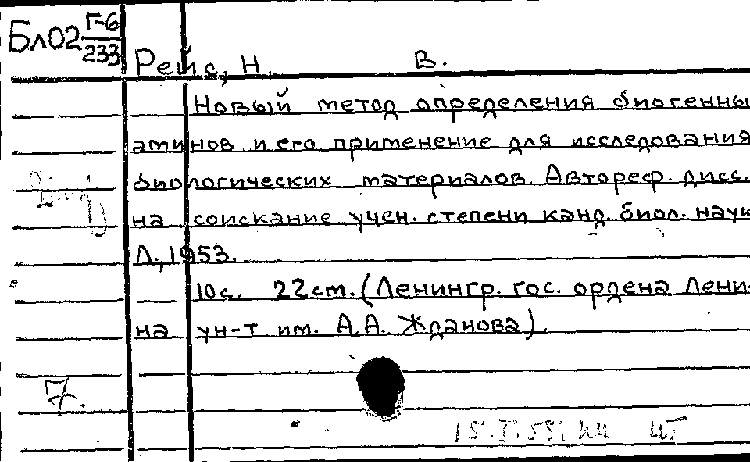 Бл02 Г-6
233
Рейс, Н. В.
Новый метод определения биогенны
аминов и его применение для исследования
биологических материалов. Автореф. дисс.
на соискание учен. степени канд. биол. наук
Л., 1953.
10с. 22см. (Ленингр. гос. ордена Лени-
на ун-т им. А.А. Жданова)
7.